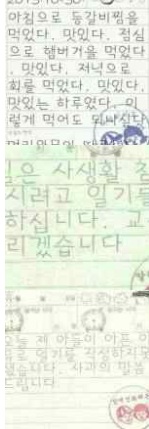 아침으로 등갈비찜을
먹었다. 맛있다. 점심
으로 햄버거을 먹었다
. 맛있다. 저녁으로
회를 먹었다. 맛있다.
맛있는 하루였다. 이
렇게 먹어도 되나싶다
은 사생활
시려고 일기를
하십니다. 교
리겠습니다
오늘 제 아들이 아픈
으로 일기를 작성하지못
했습니다. 사과의 말씀
드립니다